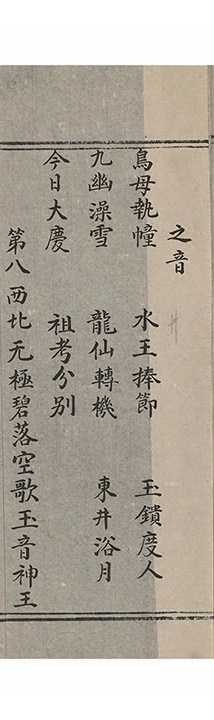 之音
鳥母執幢　水王捧節　玉鎖度人
九幽澡雪　龍仙轉機　東井浴月
今日大慶　祖考分別
第八西北无極碧落空歌玉音神王